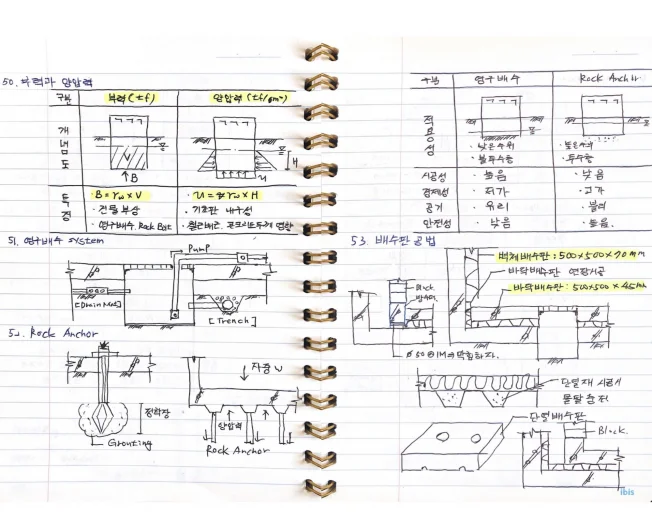 50. 부력과 양압력
구분 부력(tf) 양압력(tf/m²)
개념도
B
H
u
특징
· B = γw × V · u = γw × H
· 건물부상 · 기초판 내구성
· 영구배수, Rock Bolt
51. 영구배수 system
Pump
[Drain Mat]
[Trench]
52. Rock Anchor
정착장
Grouting
자중 W
양압력
Rock Anchor
구분 영구배수 Rock Anchor
적용성
· 낮은수위 · 높은수위
· 불투수층 · 투수층
시공성 · 높음 · 낮음
경제성 · 저가 · 고가
공기 · 유리 · 불리
안전성 · 낮음 · 높음.
53. 배수판 공법
벽체배수판 : 500×500×70mm
바닥배수판 연장시공
바닥배수판 : 500×500×45mm
Block
방수
단열재 시공시
몰탈 충전
단열배수판
Block.
ibis